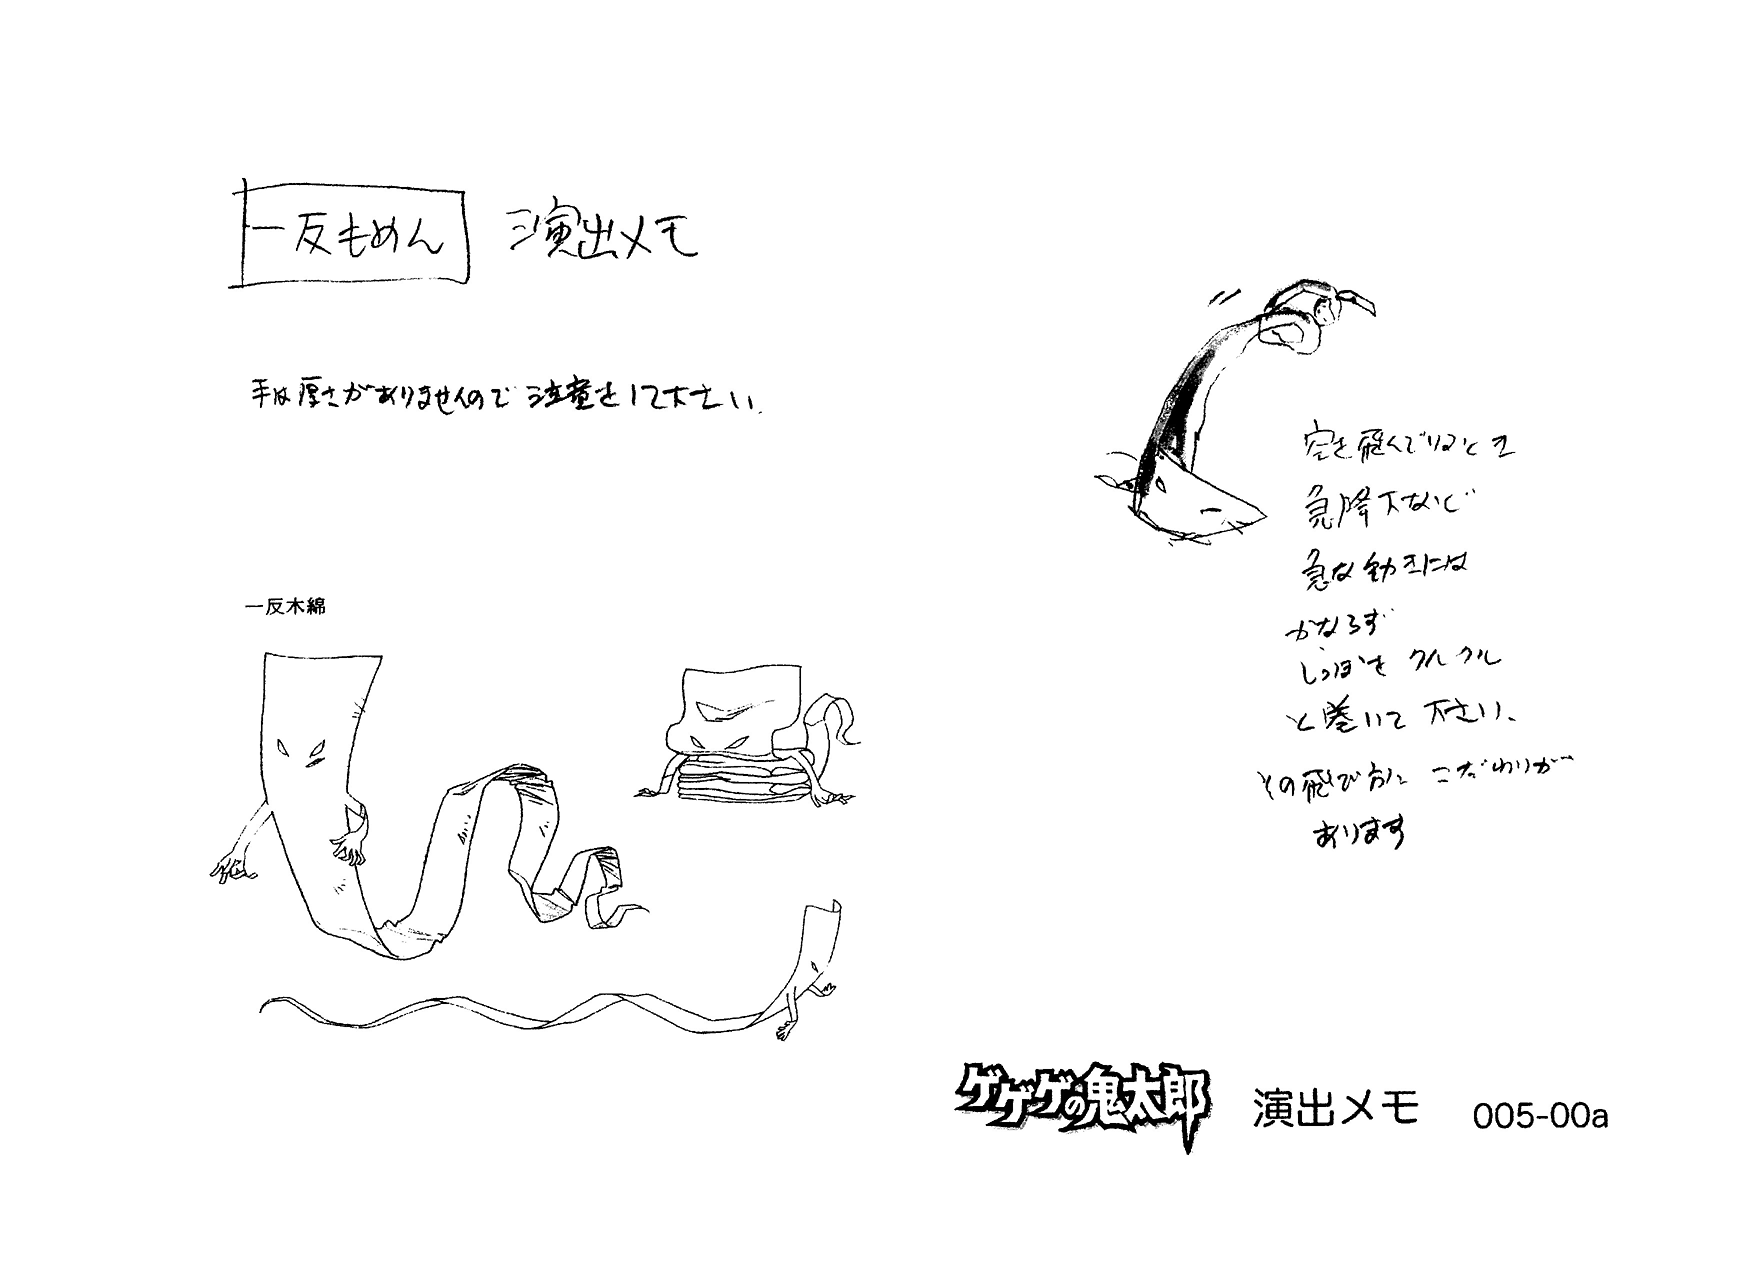 一反もめん 演出メモ
手は厚さがありませんので注意をして下さい
空を飛んでいるとき
急降下など
急な動きには
かならず
しっぽをクルクル
と巻いて下さい、
その飛び方にこだわりが
あります
一反木綿
ゲゲゲの鬼太郎 演出メモ 005-00a